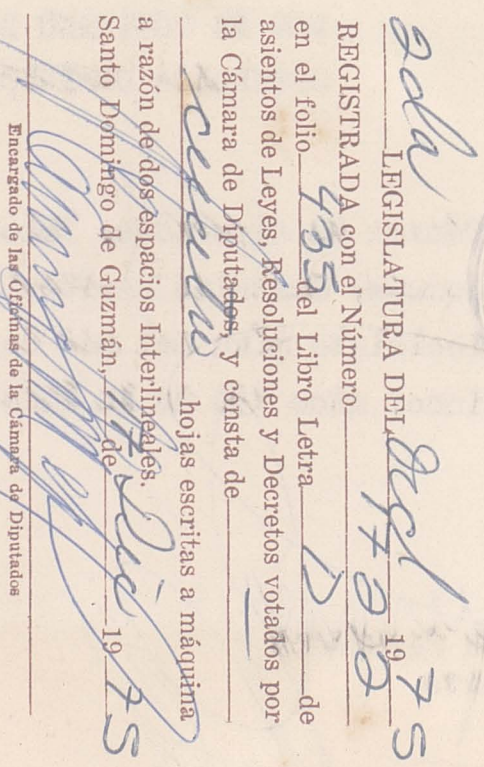 2da LEGISLATURA DEL Ord 1975
REGISTRADA con el Número
en el folio 435 del Libro Letra D de
asientos de Leyes, Resoluciones y Decretos votados por
la Cámara de Diputados, y consta de
hojas escritas a máquina
a razón de dos espacios Interlineales.
Santo Domingo de Guzmán, de Dic 1975
Encargado de las firmas de la Cámara de Diputados